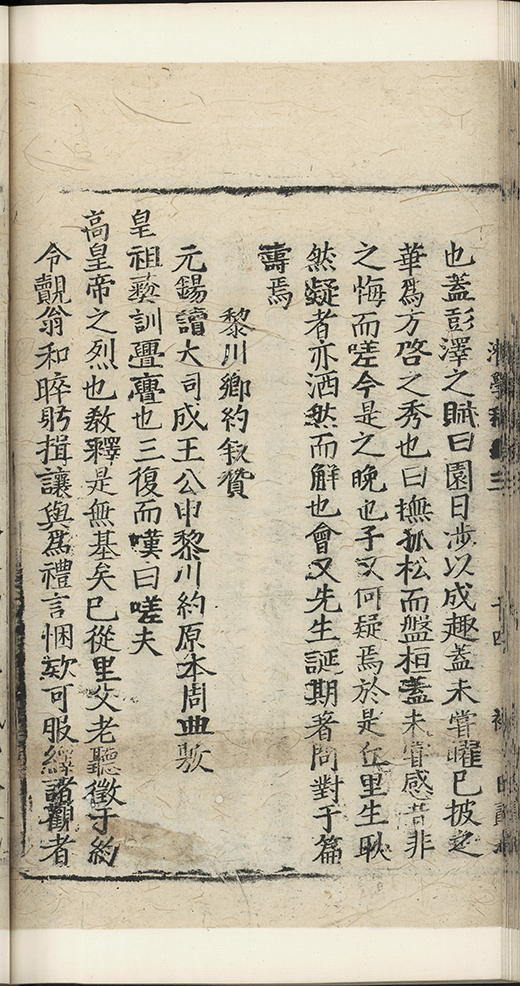 也蓋彭澤之賦曰園日涉以成趣蓋未嘗曜已披之
華爲方啓之秀也曰撫孤松而盤桓蓋未嘗感昔非
之悔而嗟今是之晚也子又何疑焉於是丘里生耿
然疑者亦洒然而解也會又先生誕期著問對于篇
壽焉
黎川鄉約敘贊
元錫讀大司成王公申黎川約原本周典敷
皇祖彝訓亹亹也三復而嘆曰嗟夫
高皇帝之烈也教釋是無基矣已從里父老聽徵于約
令覿翁和睟躬揖讓與爲禮言悃欵可服繹諸觀者